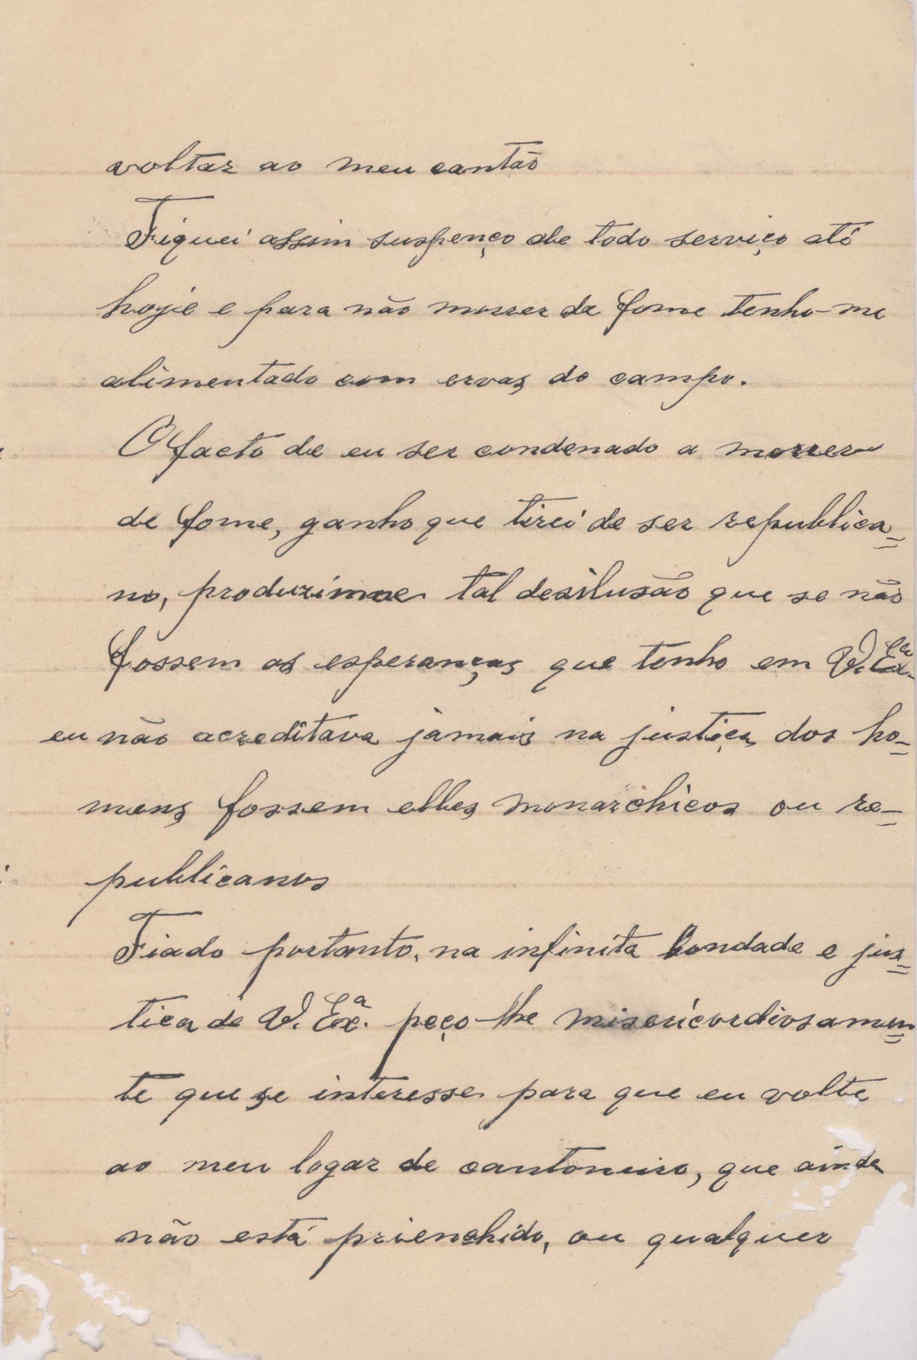 voltar ao meu cantão
Fiquei assim suspenço de todo serviço até
hoje e para não morrer de fome tenho-me
alimentado com ervas do campo.
O facto de eu ser condenado a morrer
de fome, ganho que tirei de ser republica=
no, produziu-me tal desilusão que se não
fossem as esperanças que tenho em V. Exᶜⁱᵃ
eu não acreditava jamais na justiça dos ho=
mens fossem elles monarchicos ou re=
publicanos
Fiado portanto, na infinita bondade e jus=
tica de V. Exª. peço-lhe misericordiosamen=
te que se interesse para que eu volte
ao meu logar de cantoneiro, que ainda
não está prienchido, ou qualquer